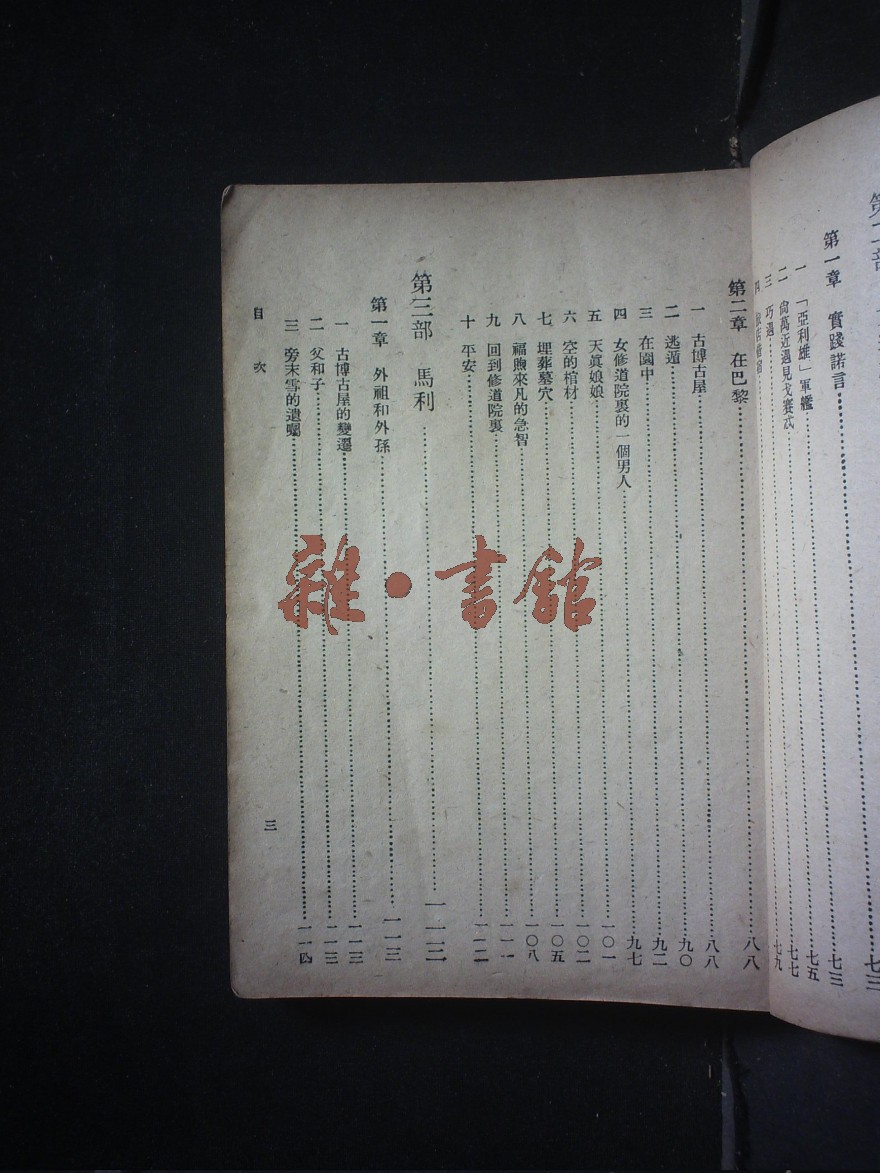 第一章　實踐諾言………七三
一　「亞利雄」軍艦………七五
二　尙萬近遇見戈賽式………七七
三　巧遇………七九
第二章　在巴黎………八八
一　古博古屋………八八
二　逃遁………九〇
三　在園中………九二
四　女修道院裏的一個男人………九七
五　天眞娘娘………一〇一
六　空的棺材………一〇二
七　埋葬墓穴………一〇五
八　福煦來凡的急智………一〇八
九　回到修道院裏………一一一
十　平安………一一二
第三部　馬利………一一三
第一章　外祖和外孫………一一三
一　古博古屋的變遷………一一三
二　父和子………一一三
三　旁末雪的遺囑………一一四
目　次
三
雜·書館